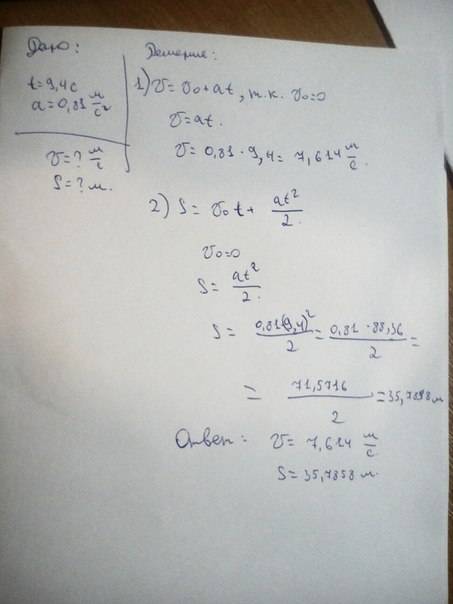 Дано:
t=9,4 с
a=0,81 м/с²
v=? м/с
S=? м.
Решение:
1) v=v₀+at, т.к. v₀=0
v=at.
v=0,81·9,4=7,614 м/с.
2) S=v₀t+ at²/2.
v₀=0
S= at²/2.
S= 0,81(9,4)²/2 = 0,81·88,36/2 =
= 71,5716/2 =35,7858 м
Ответ: v=7,614 м/с
S=35,7858 м.